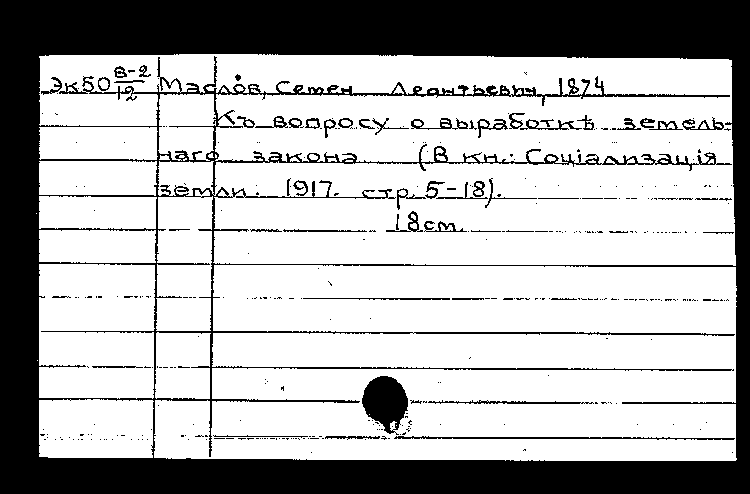 Эк50 В-2/12 Маслов, Семен Леонтьевич, 1874
Къ вопросу о выработкѣ земель-
наго закона (В кн.: Соціализація
земли. 1917. стр. 5-18).
18см.